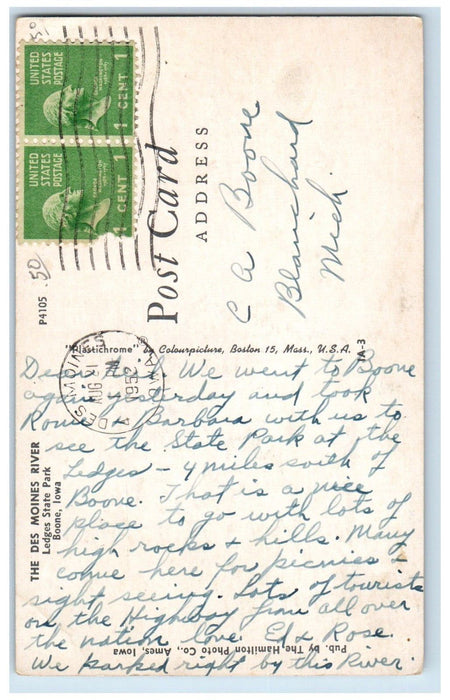 UNITED
STATES
POSTAGE
1 CENT 1
UNITED
STATES
POSTAGE
1 CENT 1
Post Card
ADDRESS
C A Boone
Blanchard
Mich
.50
P4105
"Plastichrome" by Colourpicture, Boston 15, Mass., U.S.A.
1A-3
DES MOINES
AUG 21
1952
IOWA
THE DES MOINES RIVER
Ledges State Park
Boone, Iowa
Dear We went to Boone
again yesterday and took
& Barbara with us to
see the State Park at the
Ledges - 4 miles south of
Boone. That is a nice
place to go with lots of
high rocks & hills. Many
come here for picnics &
sight seeing. Lots of tourists
on the Highway from all over
the nation love. Ed & Rose.
We parked right by this River.
Pub. by The Hamilton Photo Co., Ames, Iowa